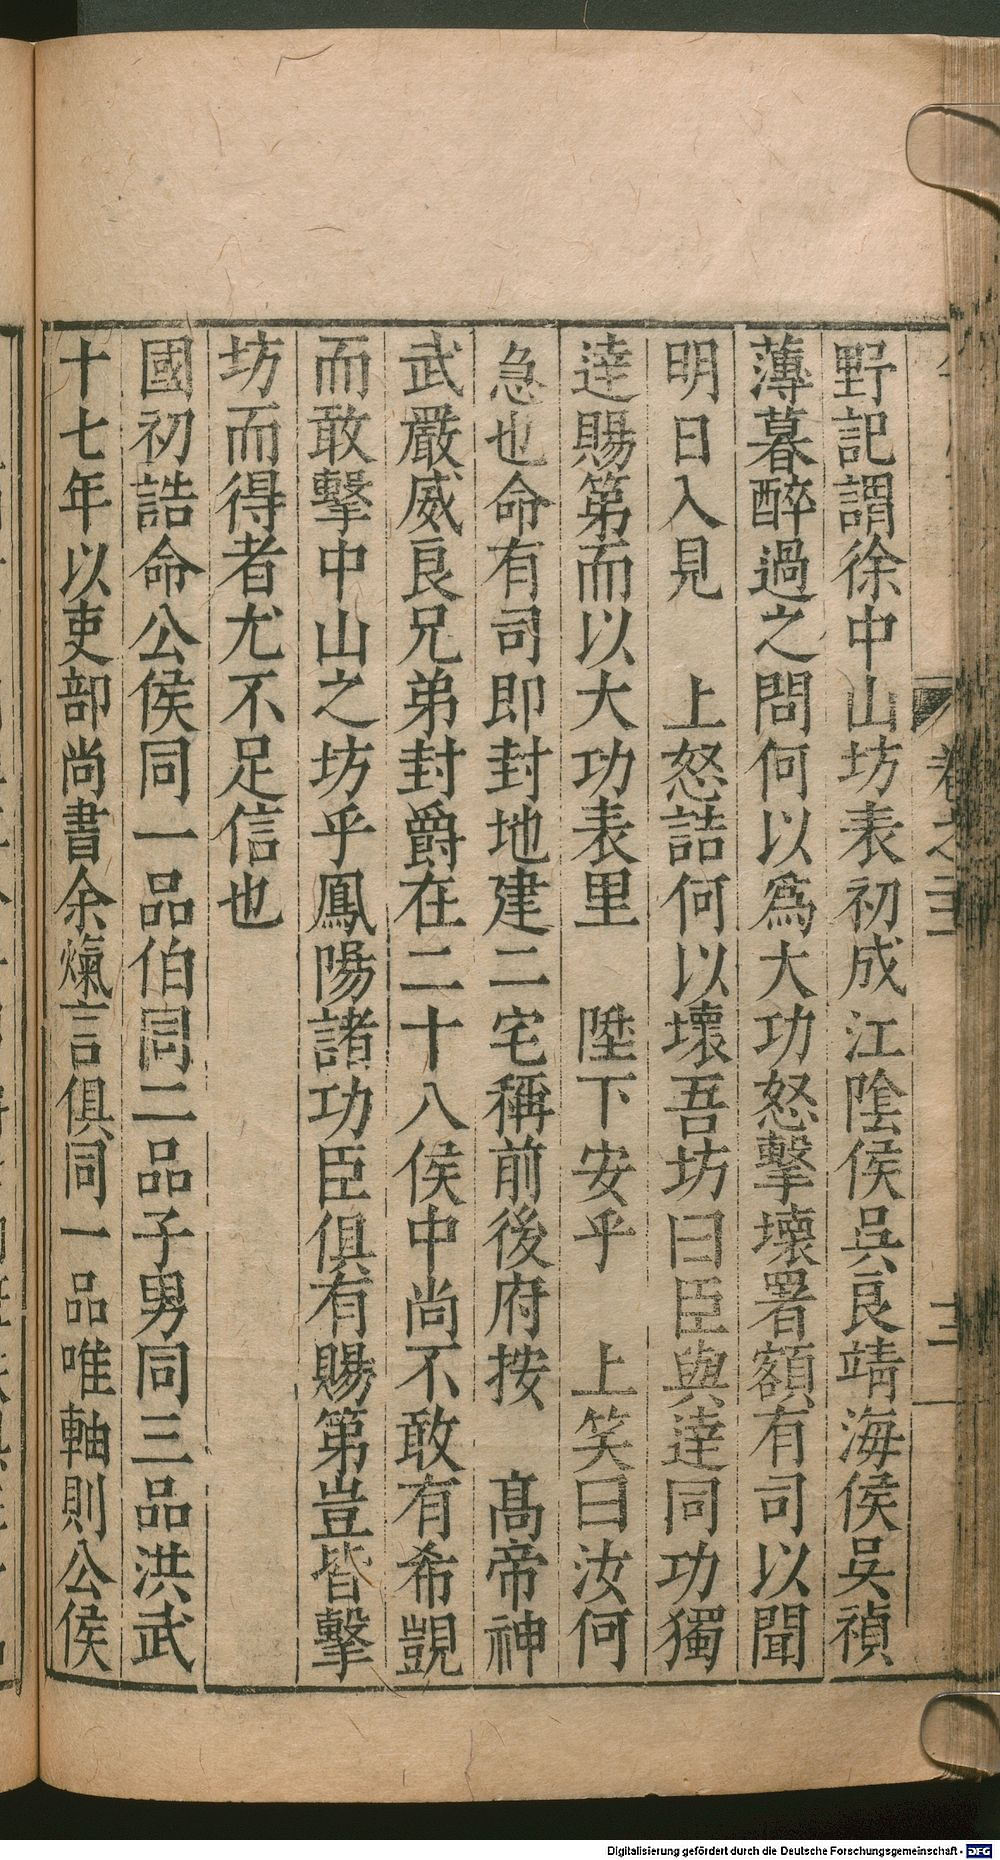 野記謂徐中山坊表初成江陰侯吳良靖海侯吳禎
薄暮醉過之問何以爲大功怒擊壞署額有司以聞
明日入見　上怒詰何以壞吾坊曰臣與達同功獨
達賜第而以大功表里　陞下安乎　上笑曰汝何
急也命有司即封地建二宅稱前後府按　髙帝神
武嚴威良兄弟封爵在二十八侯中尚不敢有希覬
而敢擊中山之坊乎鳳陽諸功臣俱有賜第豈皆擊
坊而得者尤不足信也
國初誥命公侯同一品伯同二品子男同三品洪武
十七年以吏部尚書余熂言俱同一品唯軸則公侯
卷之三
三
Digitalisierung gefördert durch die Deutsche Forschungsgemeinschaft - DFG